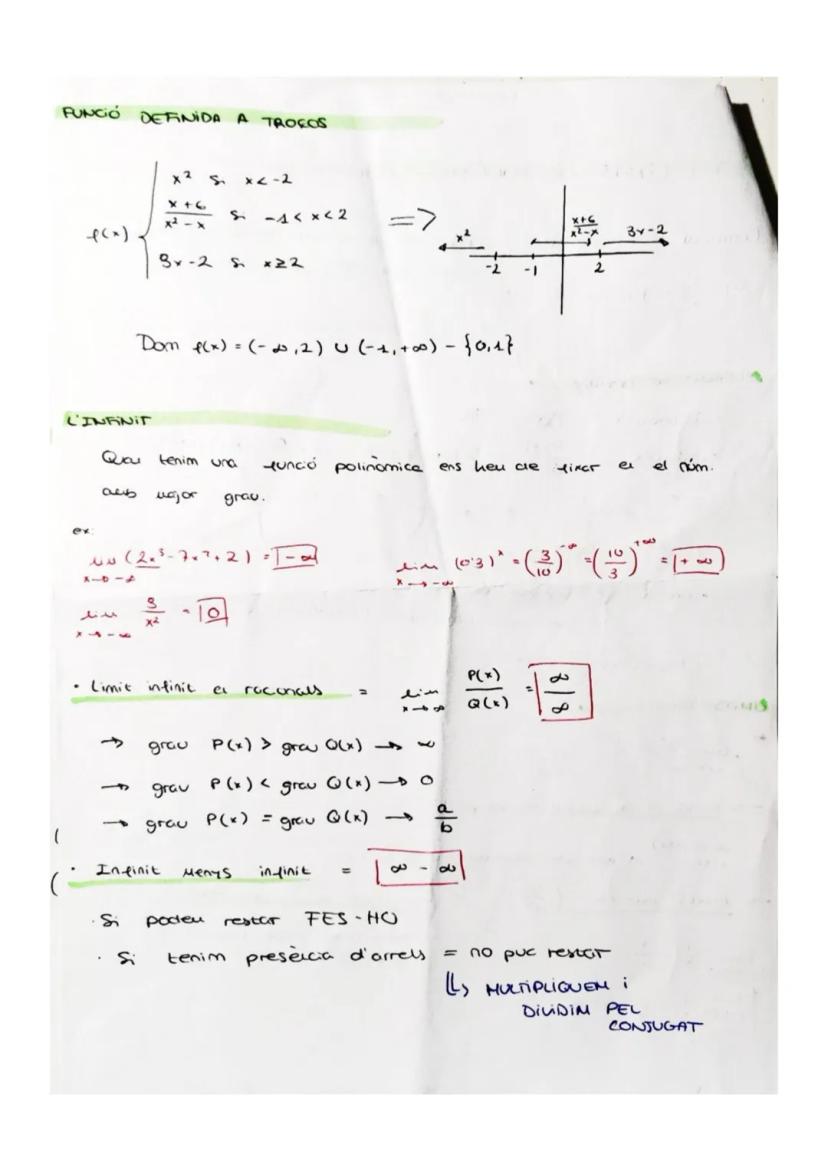 FUNCIÓ DEFINIDA A TROÇOS
x² si x<-2
f(x) { x+6 / x²-x si -1<x<2 =>
3x-2 si x≥2
x² x+6 / x²-x 3x-2
-2 -1 2
Dom f(x) = (-∞,2) ∪ (-1,+∞) - {0,1}
L'INFINIT
Quan tenim una funció polinòmica ens hem de fixar en el núm.
amb major grau.
ex:
lim x→-∞ (2x³-7x²+2) = -∞
lim x→-∞ (0'3)ˣ = (3/10)^-∞ = (10/3)^+∞ = +∞
lim x→-∞ 3/x² = 0
· Límit infinit en racionals = lim x→∞ P(x)/Q(x) = ∞/∞
→ grau P(x) > grau Q(x) → ∞
→ grau P(x) < grau Q(x) → 0
→ grau P(x) = grau Q(x) → a/b
· Infinit menys infinit = ∞ - ∞
· Si podem restar FES-HO
· Si tenim presència d'arrels = no puc restar
↳ MULTIPLIQUEM i
DIVIDIM PEL
CONJUGAT